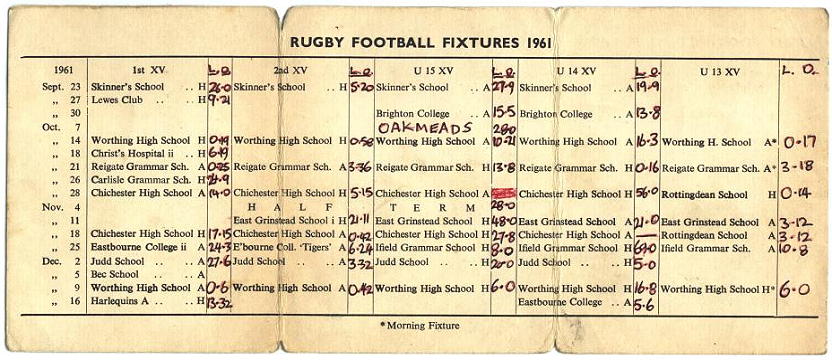 RUGBY FOOTBALL FIXTURES 1961
1961 1st XV L. O. 2nd XV L. O. U 15 XV L. O. U 14 XV L. O. U 13 XV L. O.
Sept. 23 Skinner's School .. H 26-0 Skinner's School .. H 5-20 Skinner's School .. A 27-9 Skinner's School .. A 19-9
„ 27 Lewes Club .. .. H 9-21
„ 30 Brighton College .. A 15-5 Brighton College .. A 13-8
Oct. 7 OAKMEADS 28-0
„ 14 Worthing High School H 0-19 Worthing High School H 0-58 Worthing High School A 10-21 Worthing High School A 16-3 Worthing H. School A* 0-17
„ 18 Christ's Hospital ii .. H 6-19
„ 21 Reigate Grammar Sch. A 0-25 Reigate Grammar Sch. A 3-36 Reigate Grammar Sch. H 13-8 Reigate Grammar Sch. H 0-16 Reigate Grammar Sch. A* 3-18
„ 26 Carlisle Grammar Sch. H
„ 28 Chichester High School A 14-0 Chichester High School H 5-15 Chichester High School A Chichester High School H 56-0 Rottingdean School H 0-14
Nov. 4 HALF TERM 28-0
„ 11 East Grinstead School i H 21-11 East Grinstead School H 48-0 East Grinstead School A 21-0 East Grinstead School A 3-12
„ 18 Chichester High School H 17-15 Chichester High School A 0-42 Chichester High School H 27-8 Chichester High School A — Rottingdean School A 3-12
„ 25 Eastbourne College ii A 24-3 E'bourne Coll. 'Tigers' A 6-24 Ifield Grammar School H 8-0 Ifield Grammar School H 69-0 Ifield Grammar Sch. A 10-8
Dec. 2 Judd School .. .. A 27-6 Judd School .. .. A 3-32 Judd School .. .. H 20-0 Judd School .. .. H 5-0
„ 5 Bec School .. .. A
„ 9 Worthing High School A 0-6 Worthing High School A 0-42 Worthing High School H 6-0 Worthing High School H 16-8 Worthing High School H* 6-0
„ 16 Harlequins A .. .. H 13-32 Eastbourne College .. A 5-6
*Morning Fixture